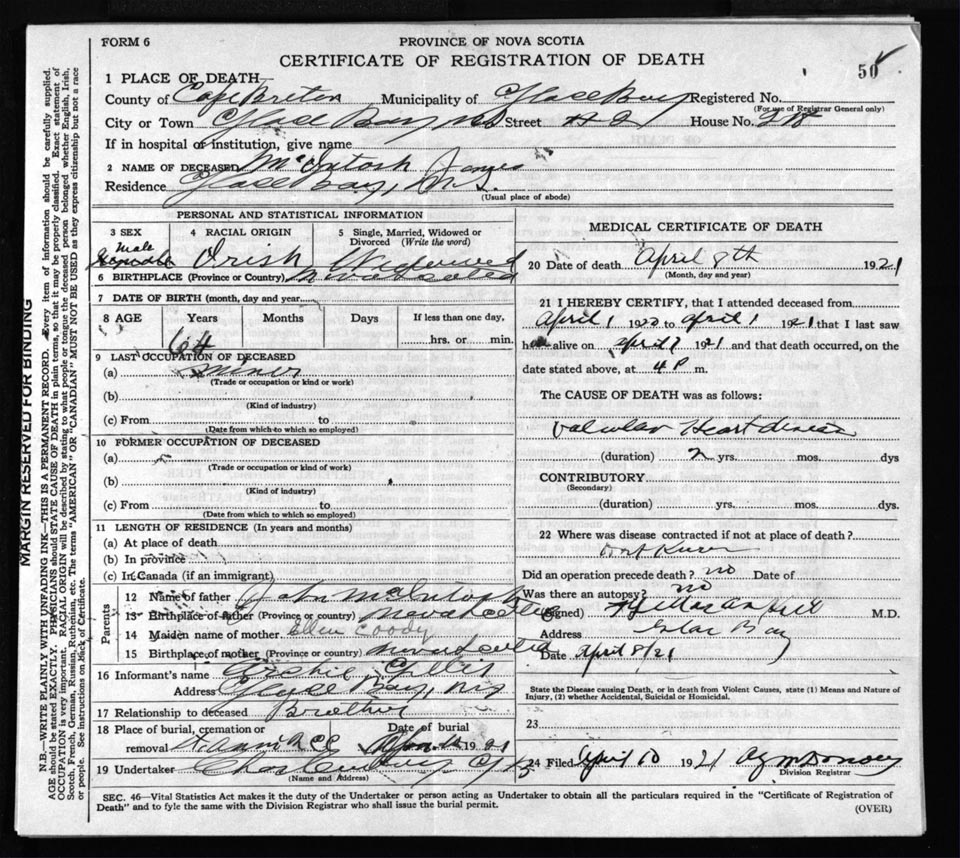 FORM 6
PROVINCE OF NOVA SCOTIA
CERTIFICATE OF REGISTRATION OF DEATH
50
MARGIN RESERVED FOR BINDING
N.B.—WRITE PLAINLY WITH UNFADING INK—THIS IS A PERMANENT RECORD. Every item of information should be carefully supplied.
AGE should be stated EXACTLY. PHYSICIANS should STATE CAUSE OF DEATH in plain terms, so that it may be properly classified. Exact statement of
OCCUPATION is very important. RACIAL ORIGIN will be described by stating to what people or tongue the deceased person belonged whether English, Irish,
Scotch, French, German, Russian, Ruthenian, etc. The terms "AMERICAN" OR "CANADIAN" MUST NOT BE USED as they express citizenship but not a race
or people. See instructions on Back of Certificate.
1 PLACE OF DEATH
County of Cape Breton Municipality of Glace Bay Registered No.
(For use of Registrar General only)
City or Town Glace Bay N.S Street House No.
If in hospital or institution, give name
2 NAME OF DECEASED McIntosh James
Residence Glace Bay, N.S.
(Usual place of abode)
PERSONAL AND STATISTICAL INFORMATION
3 SEX
Male
4 RACIAL ORIGIN
Irish
5 Single, Married, Widowed or
Divorced (Write the word)
Widowed
6 BIRTHPLACE (Province or Country) Nova Scotia
7 DATE OF BIRTH (month, day and year
8 AGE Years Months Days If less than one day,
64 hrs. or min.
9 LAST OCCUPATION OF DECEASED
(a) miner
(Trade or occupation or kind or work)
(b)
(Kind of industry)
(c) From to
(Date from which to which so employed)
10 FORMER OCCUPATION OF DECEASED
(a)
(Trade or occupation or kind of work)
(b)
(Kind of industry)
(c) From to
(Date from which to which so employed)
11 LENGTH OF RESIDENCE (In years and months)
(a) At place of death
(b) In province
(c) In Canada (if an immigrant)
Parents
12 Name of father John McIntosh
13 Birthplace of father (Province or country) Nova Scotia
14 Maiden name of mother Ellen Coody
15 Birthplace of mother (Province or country) Nova Scotia
16 Informant's name
Address Glace Bay, N.S
17 Relationship to deceased Brother
18 Place of burial, cremation or
removal
Date of burial
April 1921
19 Undertaker
(Name and Address)
MEDICAL CERTIFICATE OF DEATH
20 Date of death April 8th 1921
(Month, day and year)
21 I HEREBY CERTIFY, that I attended deceased from
April 1 1920 to April 1 1921 that I last saw
h alive on April 7 1921 and that death occurred, on the
date stated above, at 4 P m.
The CAUSE OF DEATH was as follows:
Valvular Heart disease
(duration) 2 yrs. mos. dys
CONTRIBUTORY
(Secondary)
(duration) yrs. mos. dys.
22 Where was disease contracted if not at place of death?
Did an operation precede death? no Date of
Was there an autopsy? no
(Signed) M.D.
Address Glace Bay
Date April 8/21
State the Disease causing Death, or in death from Violent Causes, state (1) Means and Nature of
Injury, (2) whether Accidental, Suicidal or Homicidal.
23
24 Filed April 10 1921
Division Registrar
SEC. 46—Vital Statistics Act makes it the duty of the Undertaker or person acting as Undertaker to obtain all the particulars required in the "Certificate of Registration of
Death" and to fyle the same with the Division Registrar who shall issue the burial permit.
(OVER)